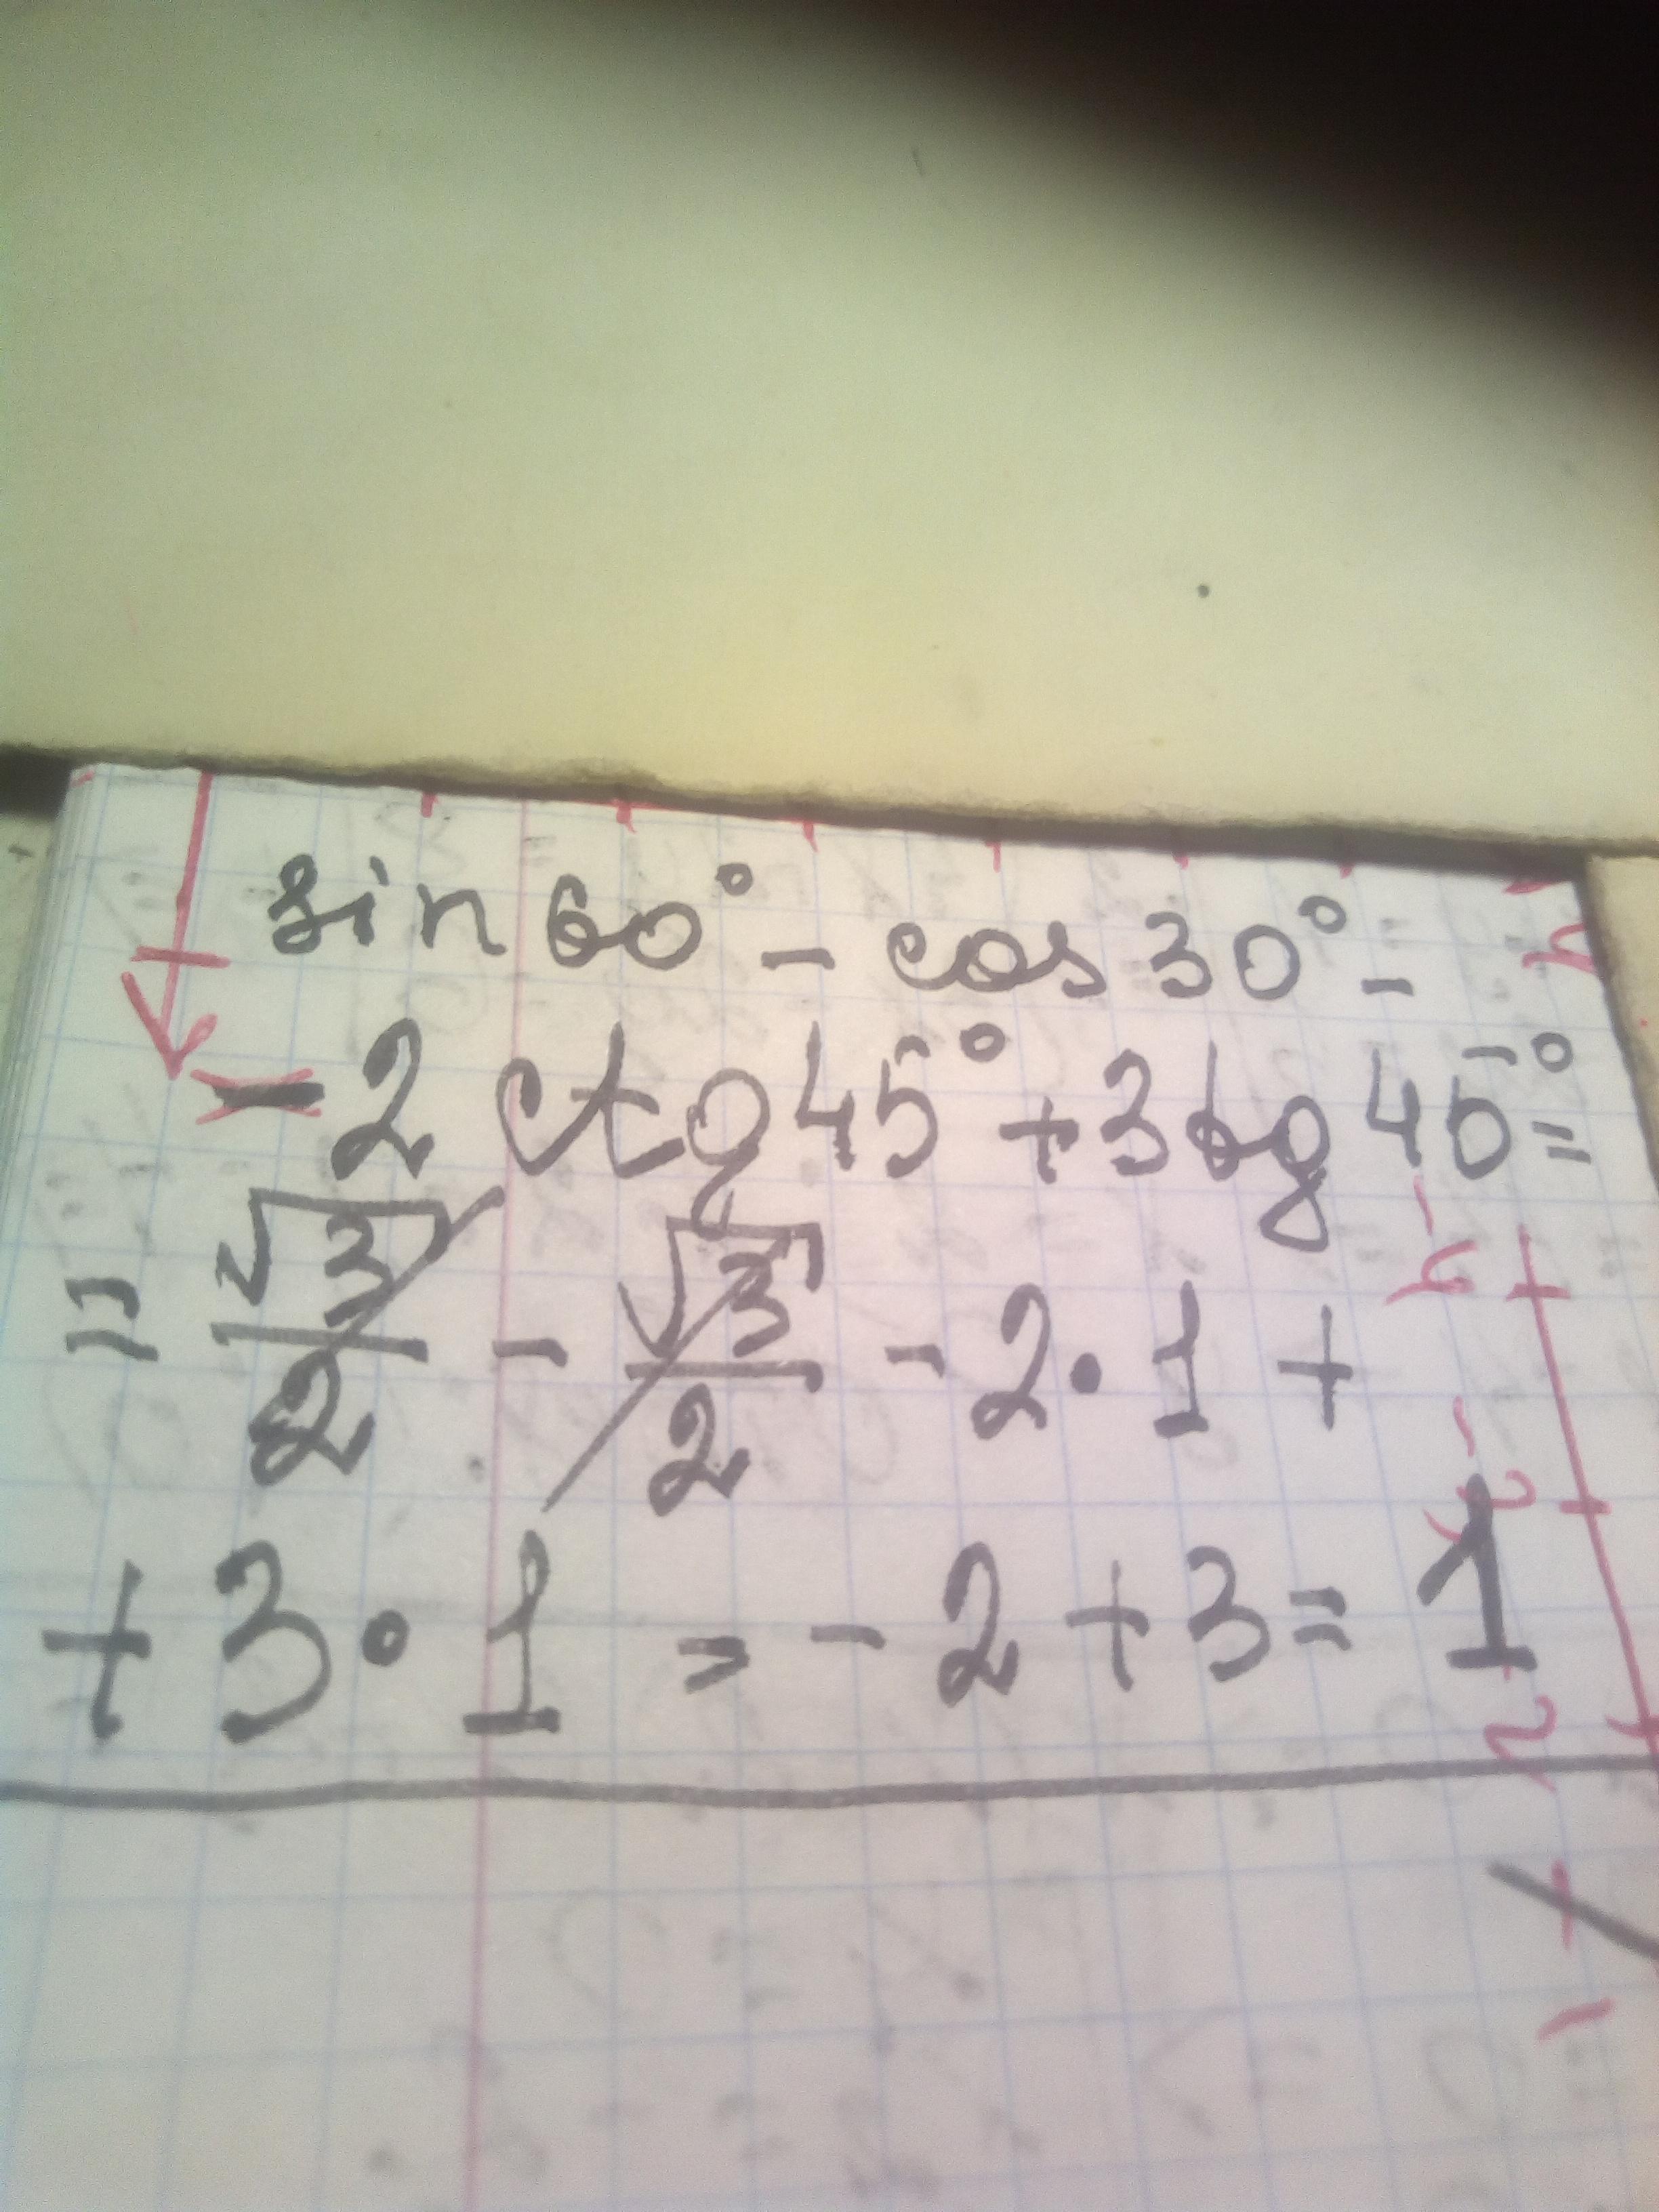 sin 60° - cos 30° -
- 2 ctg 45° + 3 tg 45° =
= √3/2 - √3/2 - 2 · 1 +
+ 3 · 1 = - 2 + 3 = 1